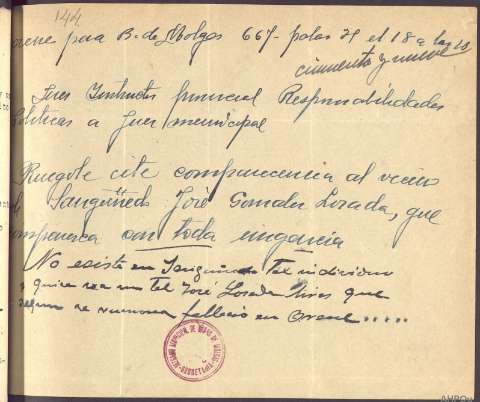 144
Orense para B. de Molgas 667- palas 21 el 18 a las 18
cincuenta y nueve
Juez Instructor provincial Responsabilidades
Políticas a Juez municipal
Ruegole cite comparecencia al vecino
de Sangüñedo José Gonzalez Lozada, que
comparezca con toda urgencia
No existe en Sanguiñedo tal individuo
y quiza sea un tal José Losada Vives que
segun se rumorea fallecio en Orense.....
JUZGADO MUNICIPAL DE BAÑOS DE MOLGAS
SECRETARIA